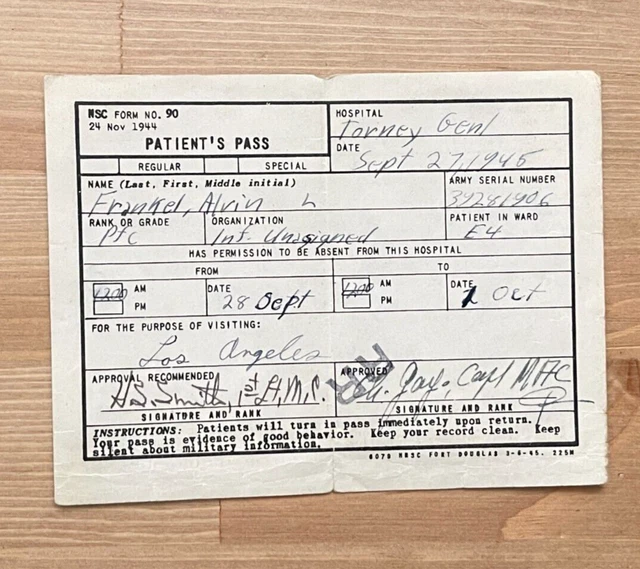 NSC FORM NO. 90
24 Nov 1944
PATIENT'S PASS
REGULAR SPECIAL
HOSPITAL
Torney Genl
DATE
Sept 27, 1945
NAME (Last, First, Middle initial)
Frankel, Alvin L
ARMY SERIAL NUMBER
39281906
RANK OR GRADE
Pfc
ORGANIZATION
Inf. Unasigned
PATIENT IN WARD
E4
HAS PERMISSION TO BE ABSENT FROM THIS HOSPITAL
FROM TO
1200 AM PM DATE 28 Sept
1200 AM PM DATE 1 Oct
FOR THE PURPOSE OF VISITING:
Los Angeles
APPROVAL RECOMMENDED
Smith, 1st Lt, M.C.
SIGNATURE AND RANK
APPROVED
Capt MAC
SIGNATURE AND RANK
INSTRUCTIONS: Patients will turn in pass immediately upon return.
Your pass is evidence of good behavior. Keep your record clean. Keep
silent about military information.
FORT DOUGLAS 3-6-45. 225M